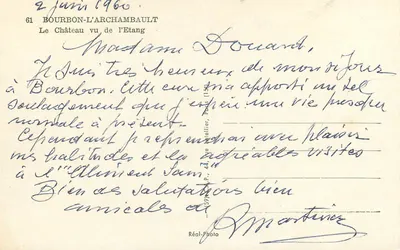 2 juin 1960.
61 BOURBON-L'ARCHAMBAULT
Le Château vu de l'Etang
Madame Douard,
Je suis très heureux de mon séjour
à Bourbon. Cette cure m'a apporté un tel
soulagement que j'espère une vie presque
normale à présent.
Cependant je reprendrai avec plaisir
mes habitudes et les agréables visites
à l'"Aliment Sain"
Bien des salutations bien
amicales de
R Martinez
Réal-Photo